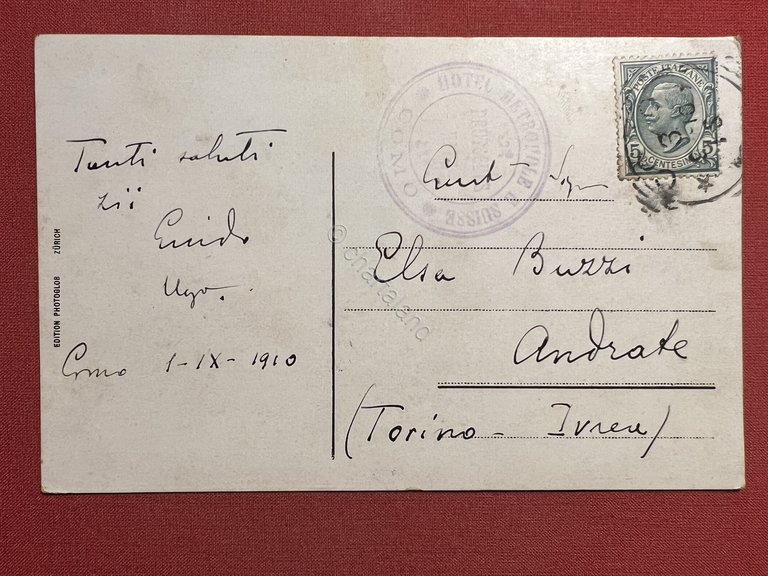 Tanti saluti
zii
Guido
Ugo.
Como 1-IX-1910
EDITION PHOTOGLOB ZÜRICH
HOTEL METROPOLE & SUISSE
COMO
POSTE ITALIANE
5 CENTESIMI 5
Gent Sign
Elsa Buzzi
Andrate
(Torino - Ivrea)
© chartaland